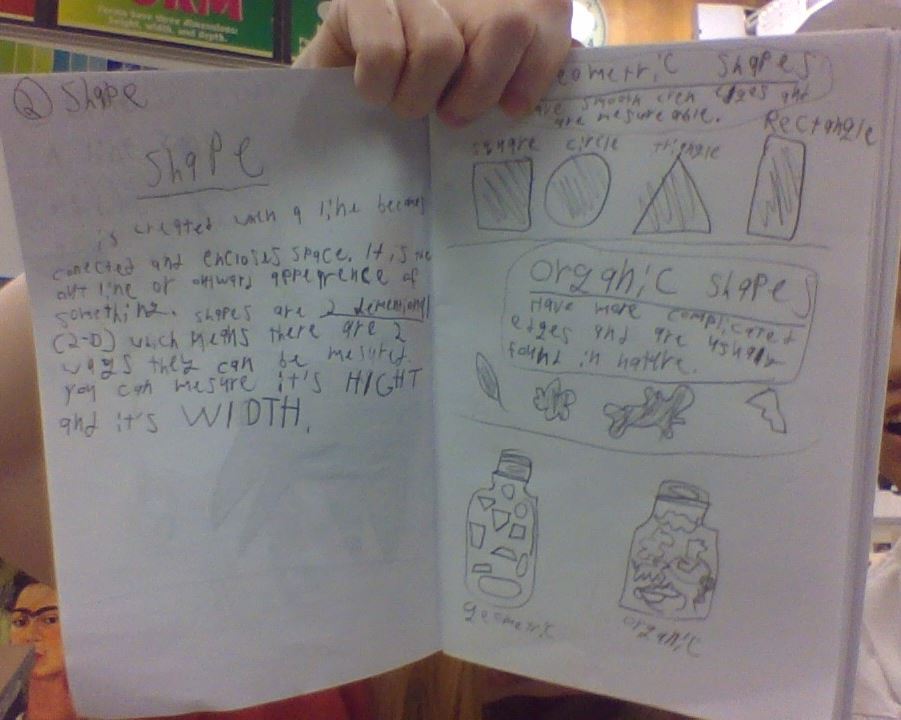 FORM
Forms have three dimensions:
height, width, and depth.
② Shape
Shape
is created when a line becomes
conected and encloses space. It is the
out line or outward apperence of
something. shapes are 2 demensional
(2-D) which means there are 2
ways they can be mesured.
you can mesure it's HIGHT
and it's WIDTH.
eometric Shapes
ave smooth even edges and
are mesureable.
square circle triangle Rectangle
Organic Shapes
Have more complicated
edges and are usually
found in nature.
geometric
organic